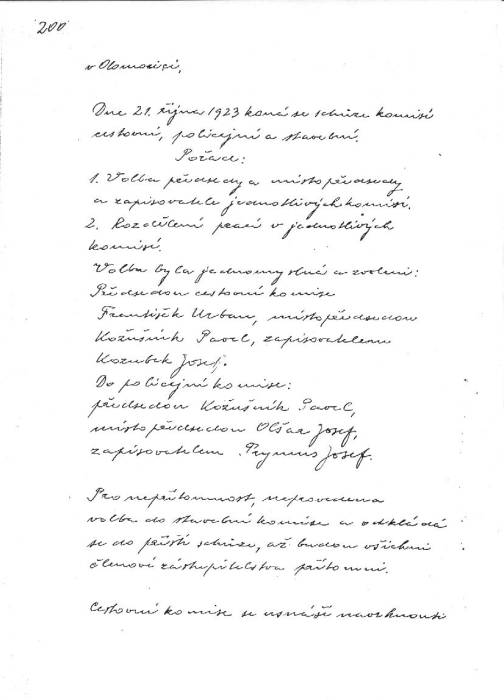 200
v Olomouci,
Dne 21. října 1923 koná se schůze komisí
cestovní, policejní a stavební.
Pořad:
1. Volba předsedy a místopředsedy
a zapisovatele jednotlivých komisí.
2. Rozdělení prací v jednotlivých
komisí.
Volba byla jednomyslná a zvoleni:
Předsedou cestovní komise
František Urban, místopředsedou
Kožušník Pavel, zapisovatelem
Kozubek Josef.
Do policejní komise:
předsedou Kožušník Pavel,
místopředsedou Olšar Josef,
zapisovatelem Prymus Josef.
Pro nepřítomnost, neprovedena
volba do stavební komise a odkládá
se do příští schůze, až budou všichni
členové zastupitelstva přítomni.
Cestovní komise se usnáší navrhnouti